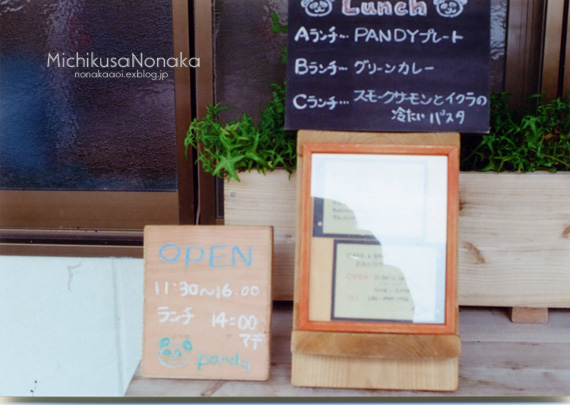 Lunch
Aランチ… PANDYプレート
Bランチ… グリーンカレー
Cランチ… スモークサーモンとイクラの
冷たいパスタ
MichikusaNonaka
nonakaaoi.exblog.jp
OPEN
11:30~16:00
ランチ 14:00
マデ
pandy